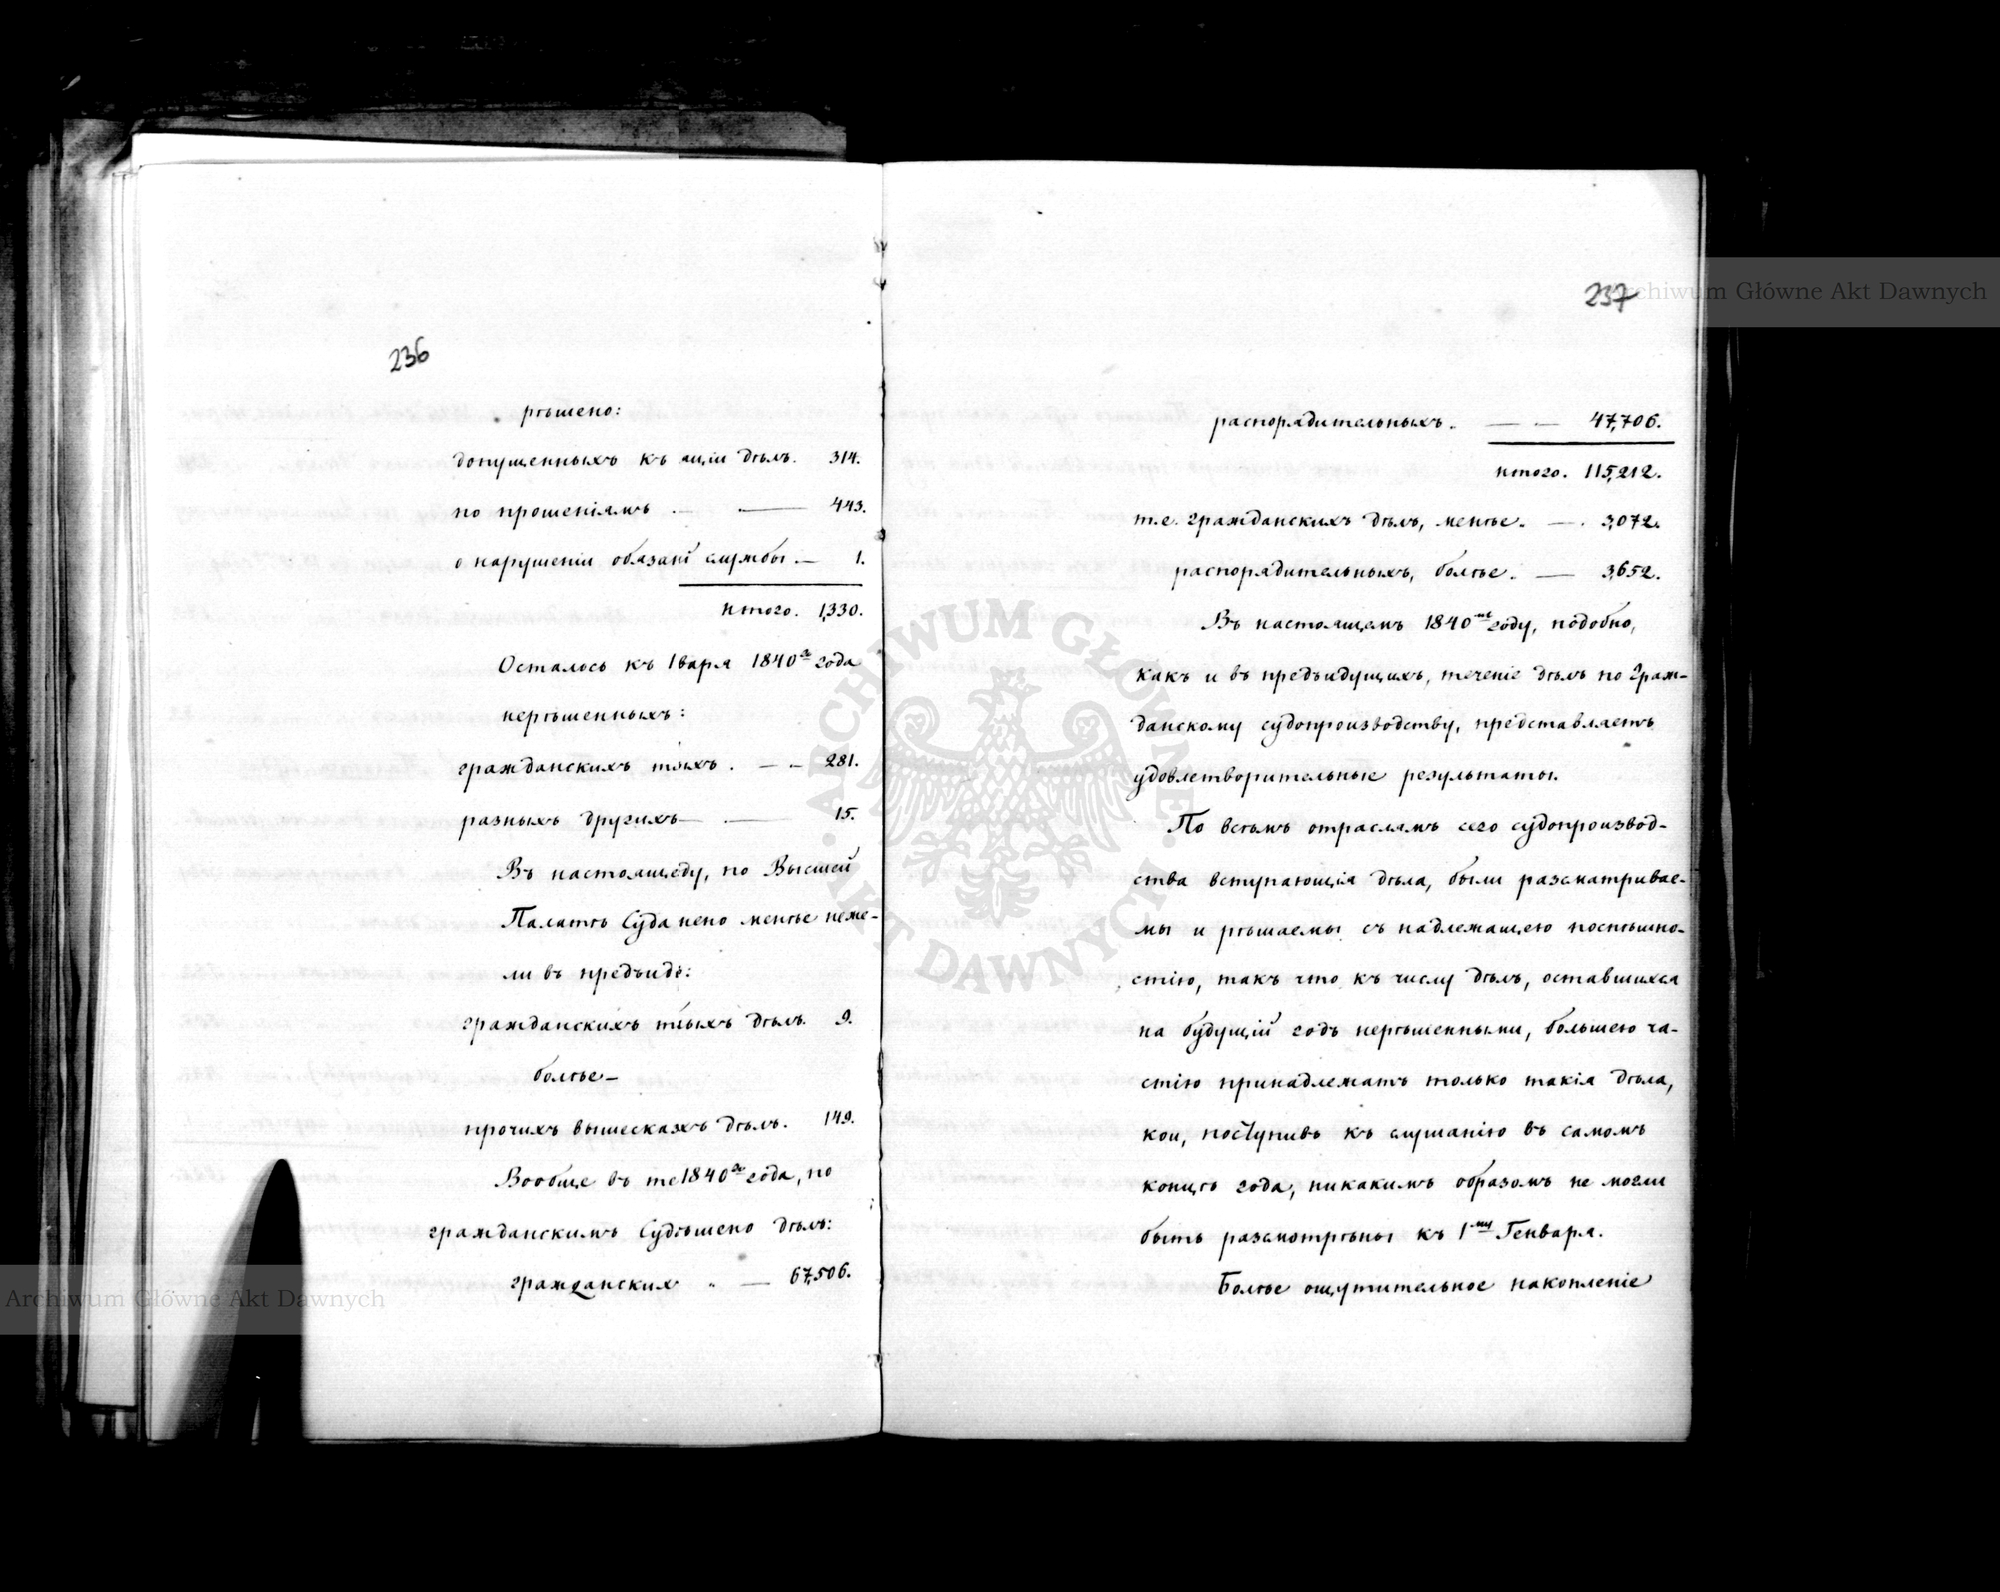 236
рѣшено:
допущенныхъ къ аціи дѣлъ. 314.
по прошеніямъ — — 443.
о нарушеніи обязанї службы. — 1.
Итого. 1,330.
Осталось къ 1варя 1840го года
нерѣшенныхъ:
гражданскихъ тяхъ. — — 281.
разныхъ другихъ — — 15.
Въ настоящеду, по Высшей
Палатѣ Суда нено менѣе неже-
ли въ предъиде:
гражданскихъ тыхъ дѣлъ. 9.
болѣе —
прочихъ вышесказхъ дѣлъ. 149.
Вообще въ те 1840го года, по
гражданскимъ Судѣшено дѣлъ:
гражданских — 67,506.
237
распорядительныхъ. — — 47,706.
Итого. 115,212.
т.е. гражданскихъ дѣлъ, менѣе. — 3,072.
распорядительныхъ, болѣе. — 3,652.
Въ настоящемъ 1840мъ году, подобно,
какъ и въ предъидущихъ, теченіе дѣлъ по граж-
данскому судопроизводству, представляетъ
удовлетворительные результаты.
По всѣмъ отраслямъ сего судопроизвод-
ства вступающія дѣла, были разсматривае-
мы и рѣшаемы съ надлежащею поспѣшно-
стію, такъ что къ числу дѣлъ, оставшихся
на будущій годъ нерѣшенными, большею ча-
стію принадлежатъ только такія дѣла,
кои, поступивъ къ слушанію въ самомъ
концѣ года, никакимъ образомъ не могли
быть разсмотрѣны къ 1му Генваря.
Болѣе ощутительное накопленіе
Archiwum Główne Akt Dawnych
Archiwum Główne Akt Dawnych
ARCHIWUM GŁÓWNE AKT DAWNYCH